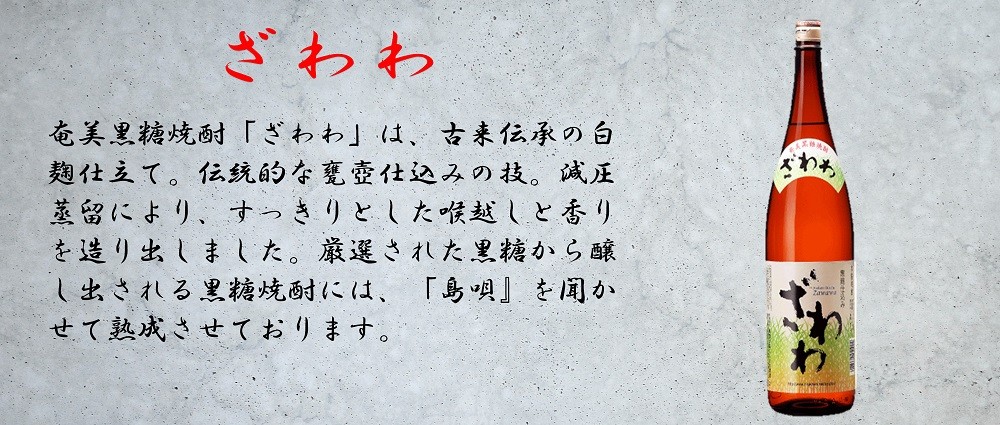 ざわわ
奄美黒糖焼酎「ざわわ」は、古来伝承の白
麹仕立て。伝統的な甕壺仕込みの技。減圧
蒸留により、すっきりとした喉越しと香り
を造り出しました。厳選された黒糖から醸
し出される黒糖焼酎には、「島唄』を聞か
せて熟成させております。
奄美黒糖焼酎
ざわわ
ざわわ